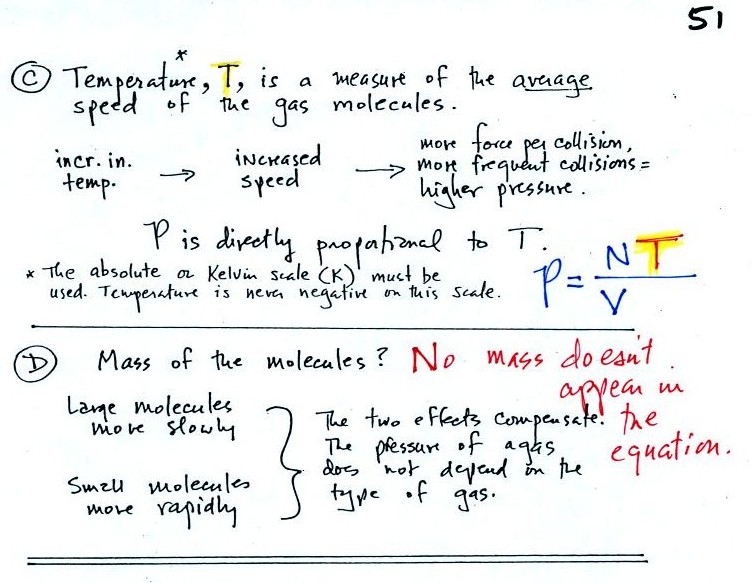 51
Ⓒ Temperature*, T, is a measure of the average
speed of the gas molecules.
incr. in. temp. → increased speed → more force per collision, more frequent collisions = higher pressure.
P is directly proportional to T.
* The absolute or Kelvin scale (K) must be
used. Temperature is never negative on this scale.
P = NT / V
Ⓓ Mass of the molecules? No mass doesn't
appear in
the
equation.
Large molecules
move slowly
Small molecules
move rapidly
The two effects compensate.
The pressure of a gas
does not depend on the
type of gas.